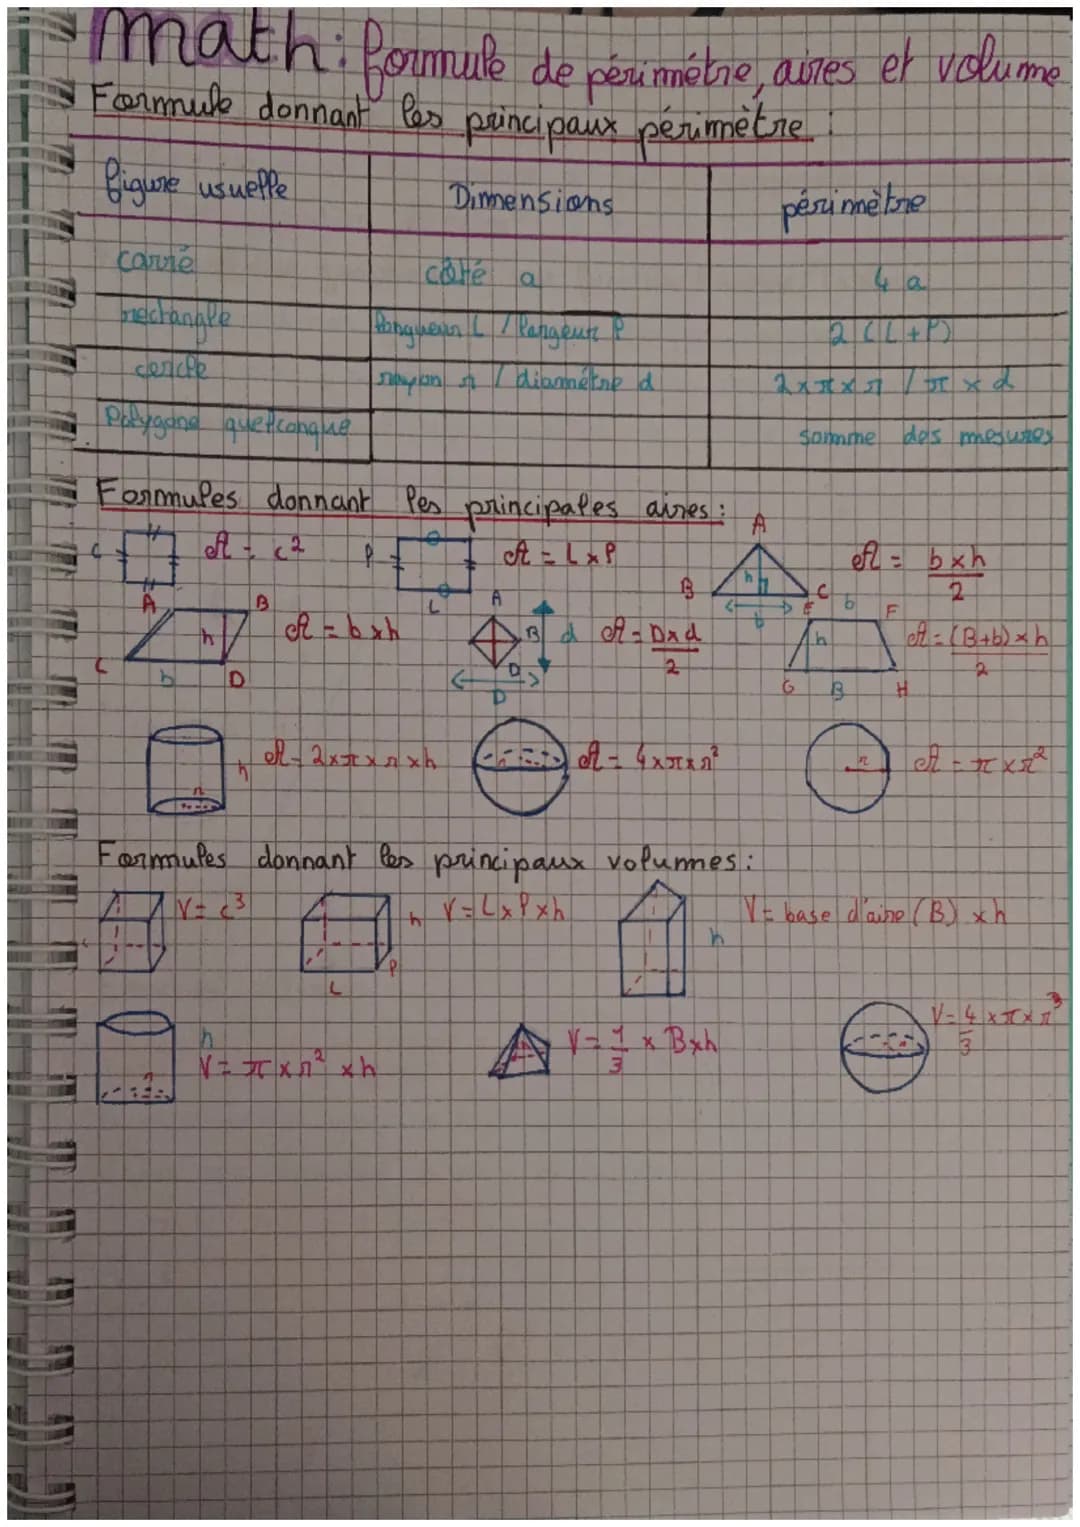 math: formule de périmétre, aires et volume
Formule donnant les principaux périmètre :
figure usuelle Dimensions périmètre
carré côté a 4 a
rectangle longueur L / largeur l 2 (L+l)
cercle rayon r / diamétre d 2×π×r / π × d
Polygone quelconque somme des mesures
Formules donnant les principales aires :
c A = c² l L A = L×l A B C h b A = b×h/2
A B C D h b A = b×h A B D d D A = D×d/2 E b F h G B H A = (B+b)×h/2
r h A = 2×π×r×h r A = 4×π×r² r A = π×r²
Formules donnant les principaux volumes :
c V = c³ L l h V = L×l×h h V = base d'aire (B) × h
r h V = π×r² ×h V = 1/3 × B×h r V = 4/3 ×π×r³